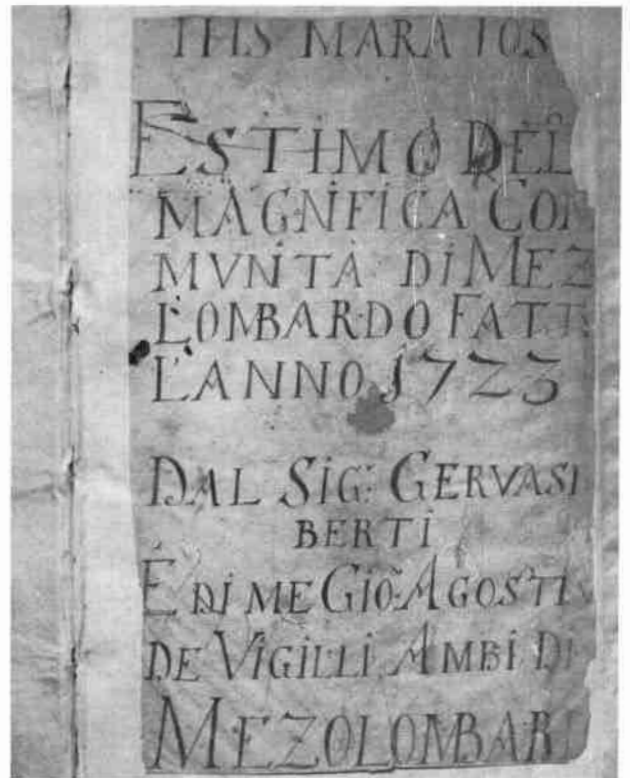 IHS MARA IOS
ESTIMO DEL
MAGNIFICA COM
MVNITÀ DI MEZ
LOMBARDO FATT
L'ANNO 1723
DAL SIG: GERVASI
BERTI
E DI ME GIO: AGOSTI
DE VIGILLI AMBI DI
MEZOLOMBAR